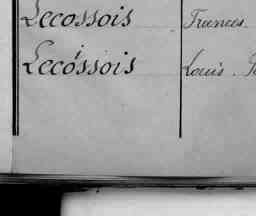 Lecossois Frances.
Lecossois Louis